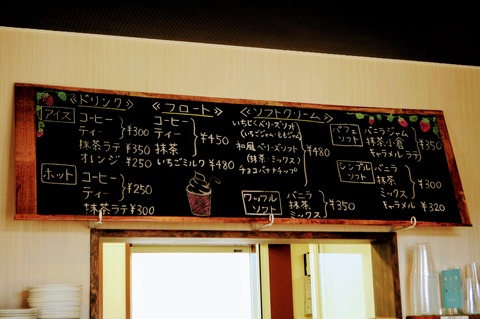 ≪ドリンク≫
アイス
コーヒー
ティー
¥300
抹茶ラテ ¥350
オレンジ ¥250
ホット
コーヒー
ティー
¥250
抹茶ラテ ¥300
≪フロート≫
コーヒー
ティー
抹茶
¥450
いちごミルク ¥480
≪ソフトクリーム≫
いちじくベリーズソフト
(いちごジャム・
和風ベリーズソフト
(抹茶・ミックス)
チョコバナナチップ
¥480
ワッフルソフト
バニラ
抹茶
ミックス
¥350
パフェソフト
バニラジャム
抹茶小倉
キャラメルラテ
¥350
シンプルソフト
バニラ
抹茶
ミックス
¥300
キャラメル ¥320